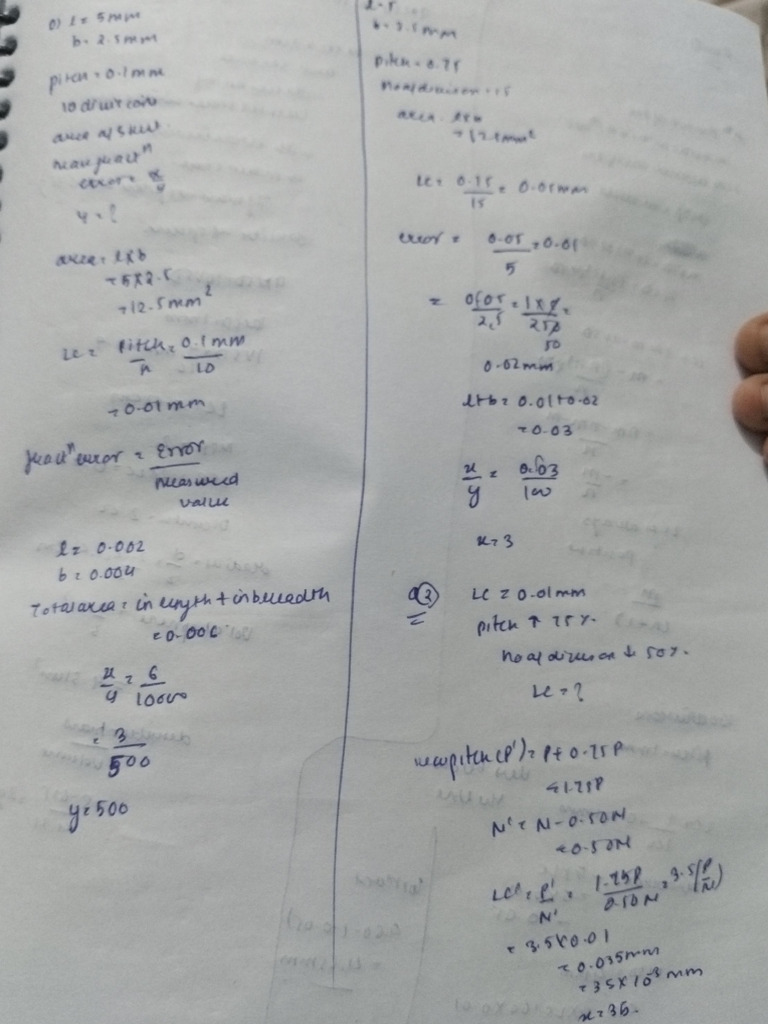 l = 5mm
b = 2.5mm
pitch = 0.1mm
10 division
area of sheet.
error = x/y
y = ?
area = lxb
= 5x2.5
= 12.5mm²
LC = pitch/n = 0.1mm/10
= 0.01mm
fractⁿ error = error/measured value
l = 0.002
b = 0.004
Total area = in length + in breadth
= 0.006
x/y = 6/1000
= 3/500
y = 500
l = 5
b = 2.5mm
pitch = 0.75
no of division = 15
area = lxb
= 12.5mm²
LC = 0.75/15 = 0.05mm
error = 0.05/5 = 0.01
= 0.05/2.5 =
0.02mm
l+b = 0.01+0.02
= 0.03
x/y = 0.03/100
x = 3
Q3 LC = 0.01mm
pitch ↑ 75%.
no of division ↓ 50%.
LC = ?
new pitch (P') = P + 0.75P
= 1.75P
N' = N - 0.50N
= 0.50N
LC' = P'/N' = 1.75P/0.50N = 3.5(P/N)
= 3.5x0.01
= 0.035mm
= 35x10⁻³ mm
x = 35.